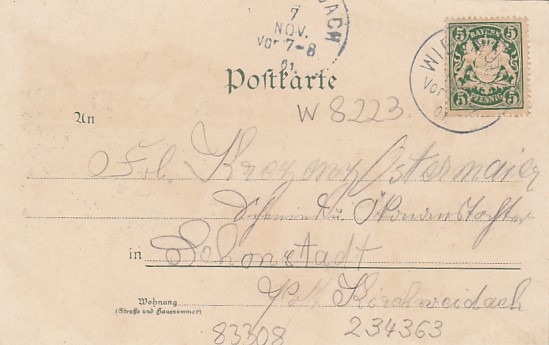 BACH
7
NOV.
Vor 7-8
01.
WI
Vor
01
5 BAYERN 5
5 PFENNIG 5
Postkarte
W 8223
An
Frl. Ostermaier
Ökonomen Tochter
in Schonstadt
Post Kirchweidach
Wohnung
(Straße und Hausnummer)
83308 234363